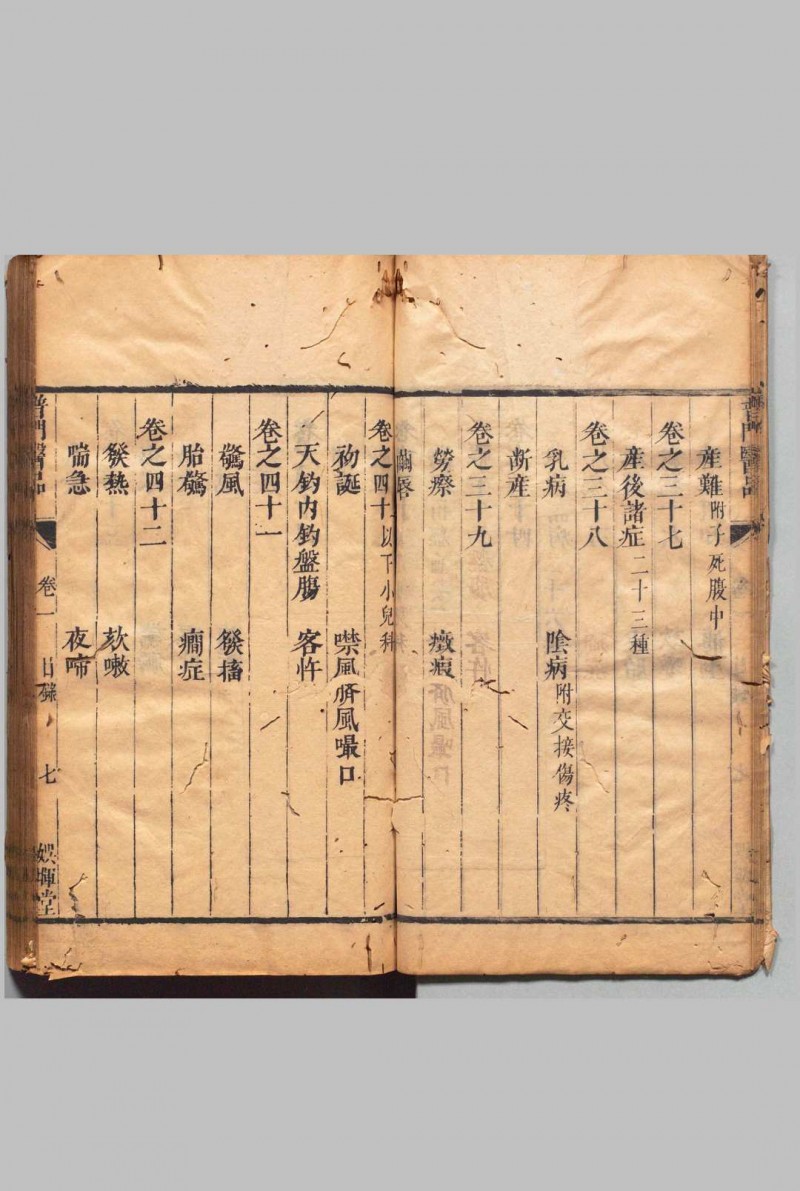 產難附子死腹中
卷之三十七
產後諸症二十三種
卷之三十八
乳病 陰病附交接傷疼
斷產
卷之三十九
勞瘵 癥瘕
繭唇
卷之四十以下小兒科
初誕 噤風臍風嘬口
天釣內釣盤腸 客忤
卷之四十一
驚風 發搐
胎驚 癎症
卷之四十二
發熱 欬嗽
喘急 夜啼
普門醫品 卷一 目錄 七 娛暉堂